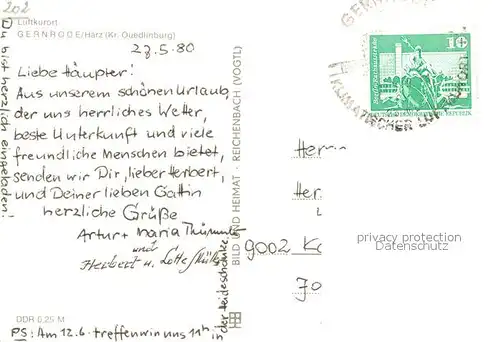 202
Luftkurort
GERNRODE/Harz (Kr. Quedlinburg)
27.5.80
Liebe Häupter!
Aus unserem schönen Urlaub,
der uns herrliches Wetter,
beste Unterkunft und viele
freundliche Menschen bietet,
senden wir Dir, lieber Herbert,
und Deiner lieben Gattin
herzliche Grüße
Artur + Maria
und
Herbert u. Lotte
DDR 0,25 M
PS: Am 12.6. treffen wir uns 11h in
der Heideschänke
Du bist herzlich eingeladen!
BILD UND HEIMAT · REICHENBACH (VOGTL)
GERNRODE
KLIMATISCHER LUFTKURORT
10
DEUTSCHE DEMOKRATISCHE REPUBLIK
Herrn
Her
9002 K
privacy protection
Datenschutz